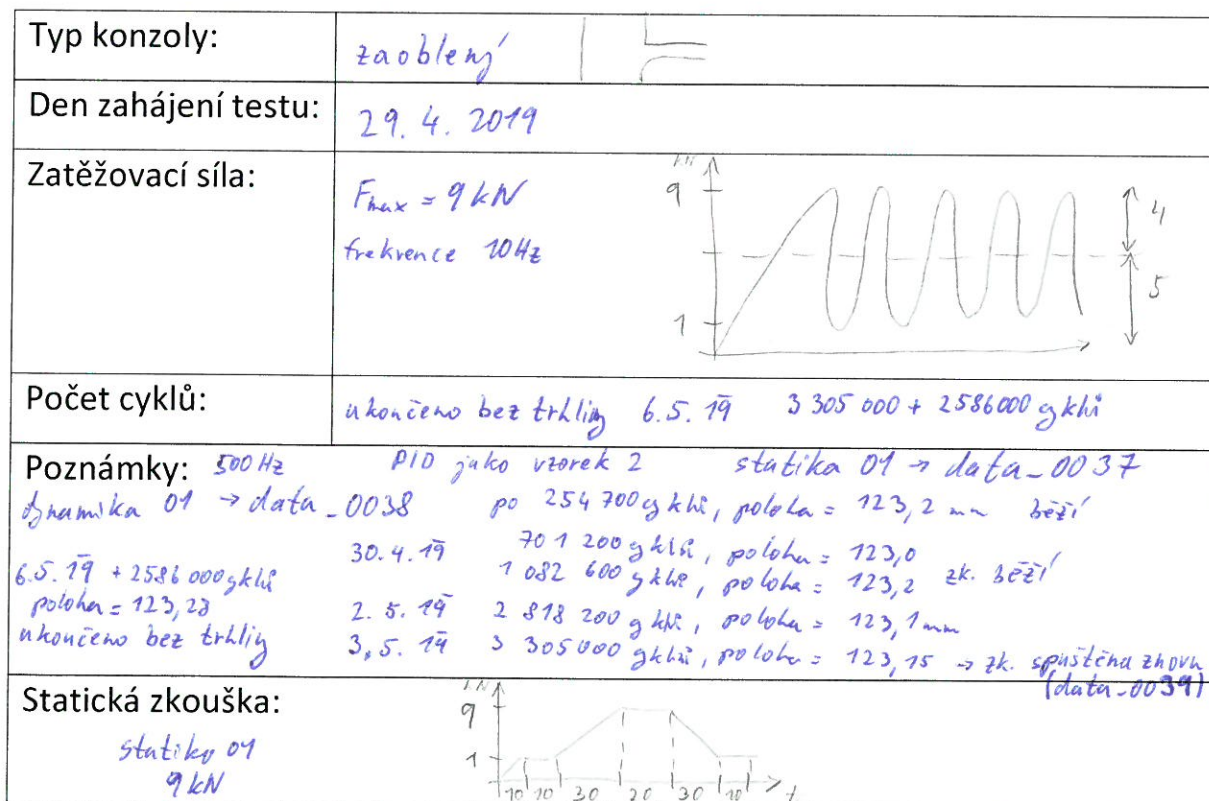 Typ konzoly: zaoblený
Den zahájení testu: 29. 4. 2019
Zatěžovací síla:
Fmax = 9 kN
frekvence 10Hz
kN
9
1
4
5
Počet cyklů: ukončeno bez trhliny 6.5.19 3 305 000 + 2586000 cyklů
Poznámky: 500 Hz PID jako vzorek 2 statika 01 → data_0037
dynamika 01 → data_0038 po 254 700 cyklů, poloha = 123,2 mm běží
30.4.19 701 200 cyklů, poloha = 123,0
1 082 600 cyklů, poloha = 123,2 zk. běží
6.5.19 + 2586 000 cyklů
poloha = 123,23
ukončeno bez trhliny
2.5.19 2 818 200 cyklů, poloha = 123,1 mm
3.5.19 3 305 000 cyklů, poloha = 123,15 → zk. spuštěna znovu
(data_0039)
Statická zkouška:
statika 01
9 kN
kN
9
1
10 10 30 20 30 10 t